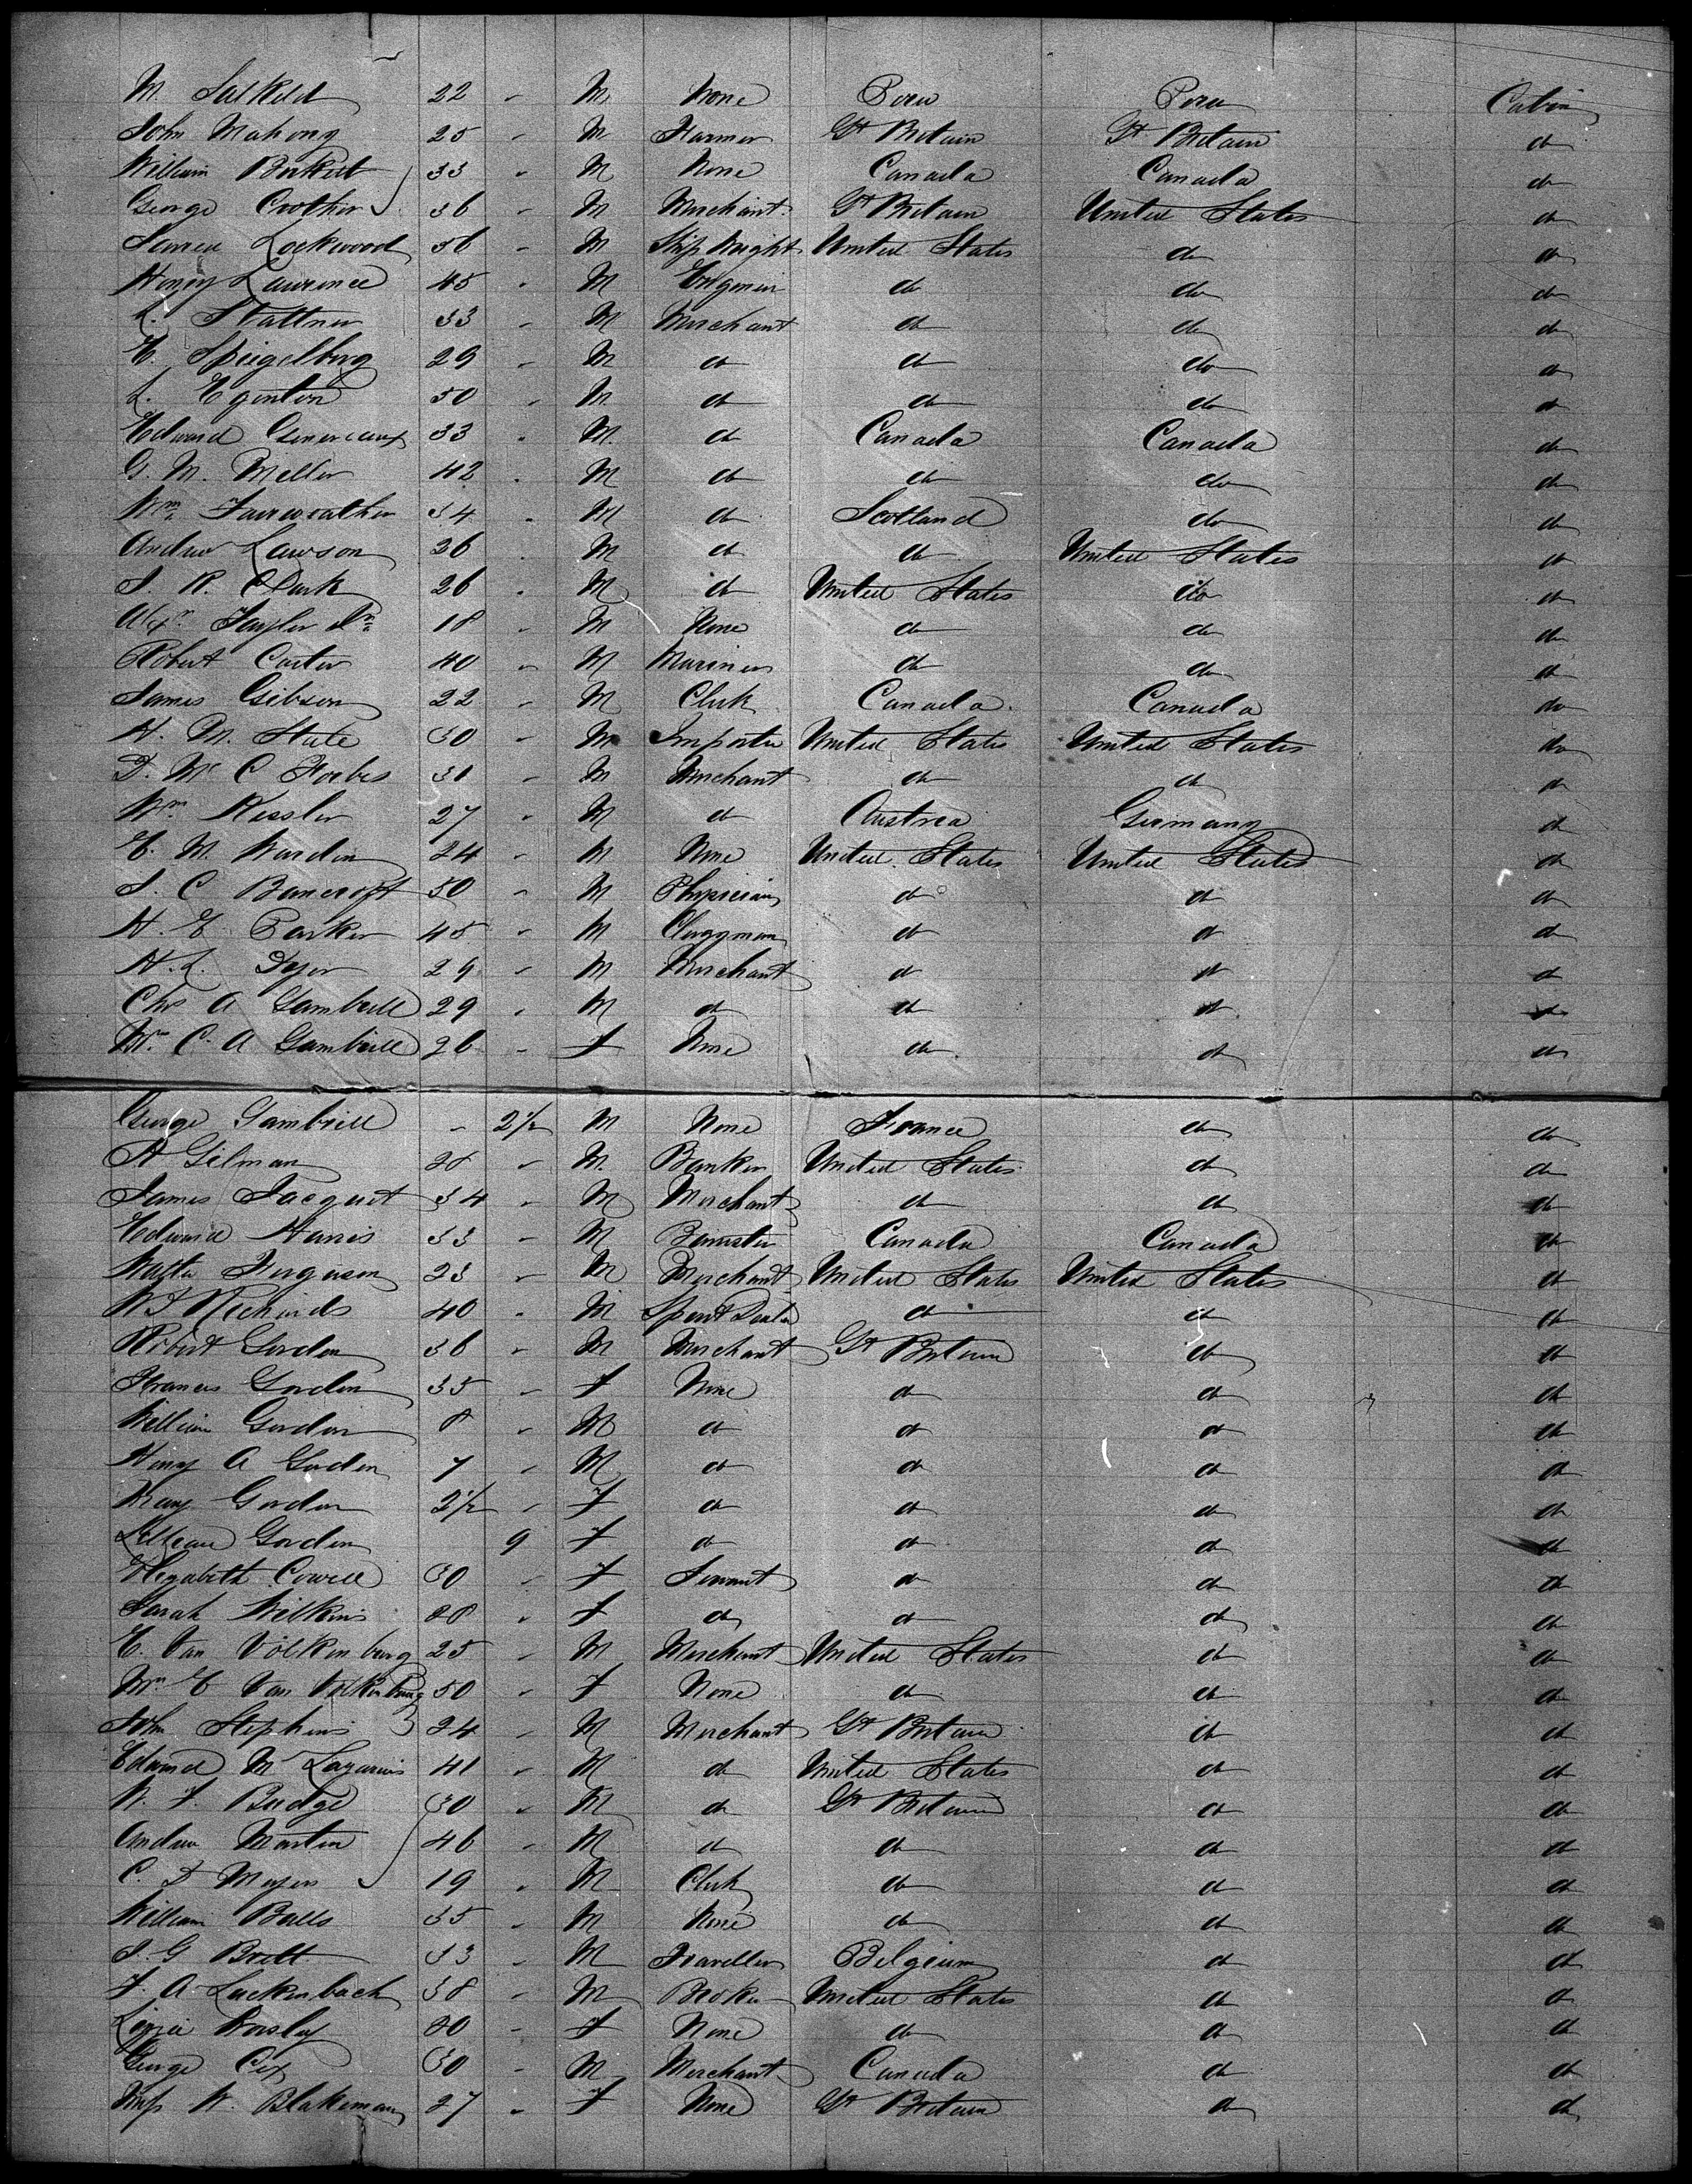 M. Salkeld 22 " M None Peru Peru Cabin
John Mahony 25 " M Farmer Gt Britain Gt Britain do
William Birkett 33 " M None Canada Canada do
George Crother 36 " M Merchant Gt Britain United States do
Lockwood 56 " M Ship Wright United States do do
Henry Lawrence 45 " M Engineer do do do
L. Stattner 33 " M Merchant do do do
E. Speigelberg 29 " M do do do do
L. Eginton 50 " M do do do do
Edward 33 " M do Canada Canada do
G. M. Miller 42 " M do do do do
Wm Fairweather 34 " M do Scotland do do
Andrew Lawson 26 " M do do United States do
J. R. Clark 26 " M do United States do do
Alexr. Taylor Jnr 18 " M None do do do
Robert Carter 40 " M Mariner do do do
James Gibson 22 " M Clerk Canada Canada do
H. M. State 30 " M Importer United States United States do
D. Mc C Forbes 31 " M Merchant do do do
Wm Kessler 27 " M do Austria Germany do
E. M. Warden 24 " M None United States United States do
J. C Bancroft 50 " M Physician do do do
H. E. Parker 45 " M Clergyman do do do
H. L. Dyer 29 " M Merchant do do do
Chs A Gambrill 29 " M do do do do
Mrs C. A Gambrill 26 " F None do do do
George Gambrill " 2½ M None France do do
A Gilman 28 " M Banker United States do do
James Jacquet 34 " M Merchant do do do
Edward Harris 33 " M Barrister Canada Canada do
Walter Ferguson 23 " M Merchant United States United States do
W T Richards 40 " M Dealer do do do
Robert Gordon 36 " M Merchant Gt Britain do do
Frances Gordon 35 " F None do do do
William Gordon 8 " M do do do do
Henry A Gordon 7 " M do do do do
Mary Gordon 2½ " F do do do do
Lillian Gordon 9 F do do do do
Elizabeth Cowell 30 " F Servant do do do
Sarah Wilkins 28 " F do do do do
E. Van Volkenburg 25 " M Merchant United States do do
Mrs E Van Volkenburg 50 " F None do do do
John Stephens 24 " M Merchant Gt Britain do do
Edward M Lazarus 41 " M do United States do do
W. F. Budge 30 " M do Gt Britain do do
Andrew Martin 46 " M do do do do
C. D Meyers 19 " M Clerk do do do
William Balls 35 " M None do do do
J. G Britt 33 " M Traveller Belgium do do
F. A Lackenbach 38 " M Broker United States do do
Lizzie 20 " F None do do do
George Cox 30 " M Merchant Canada do do
Miss W. Blakeman 27 " F None Gt Britain do do